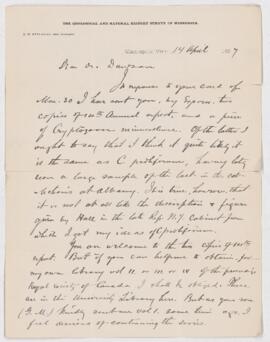 THE GEOLOGICAL AND NATURAL HISTORY SURVEY OF MINNESOTA.
14 April
Dear Dr. Dawson
In response to your card of
Mar. 30 I have sent you, by Express, two
copies of 10th Annual report, and a piece
of Cryptozoon minnesotense. Of the latter I
ought to say that I think it quite likely it
is the same as C. proliferum, having lately
seen a large sample of the last in the col-
lections at Albany. It is true, however, that
it is not at all like the description & figures
given by Hall in the late Rep. N.Y. Cabinet from
which I got my ideas of C. proliferum.
You are welcome to the two copies of 10th
report. But if you can help me to obtain for
my own library vol II. or III. or IV of the
Royal Society of Canada I shall be obliged. There
are in the University Library here. But as you
(G.M.) kindly sent me vol 1. some time ago, I
feel desirous of continuing the series.